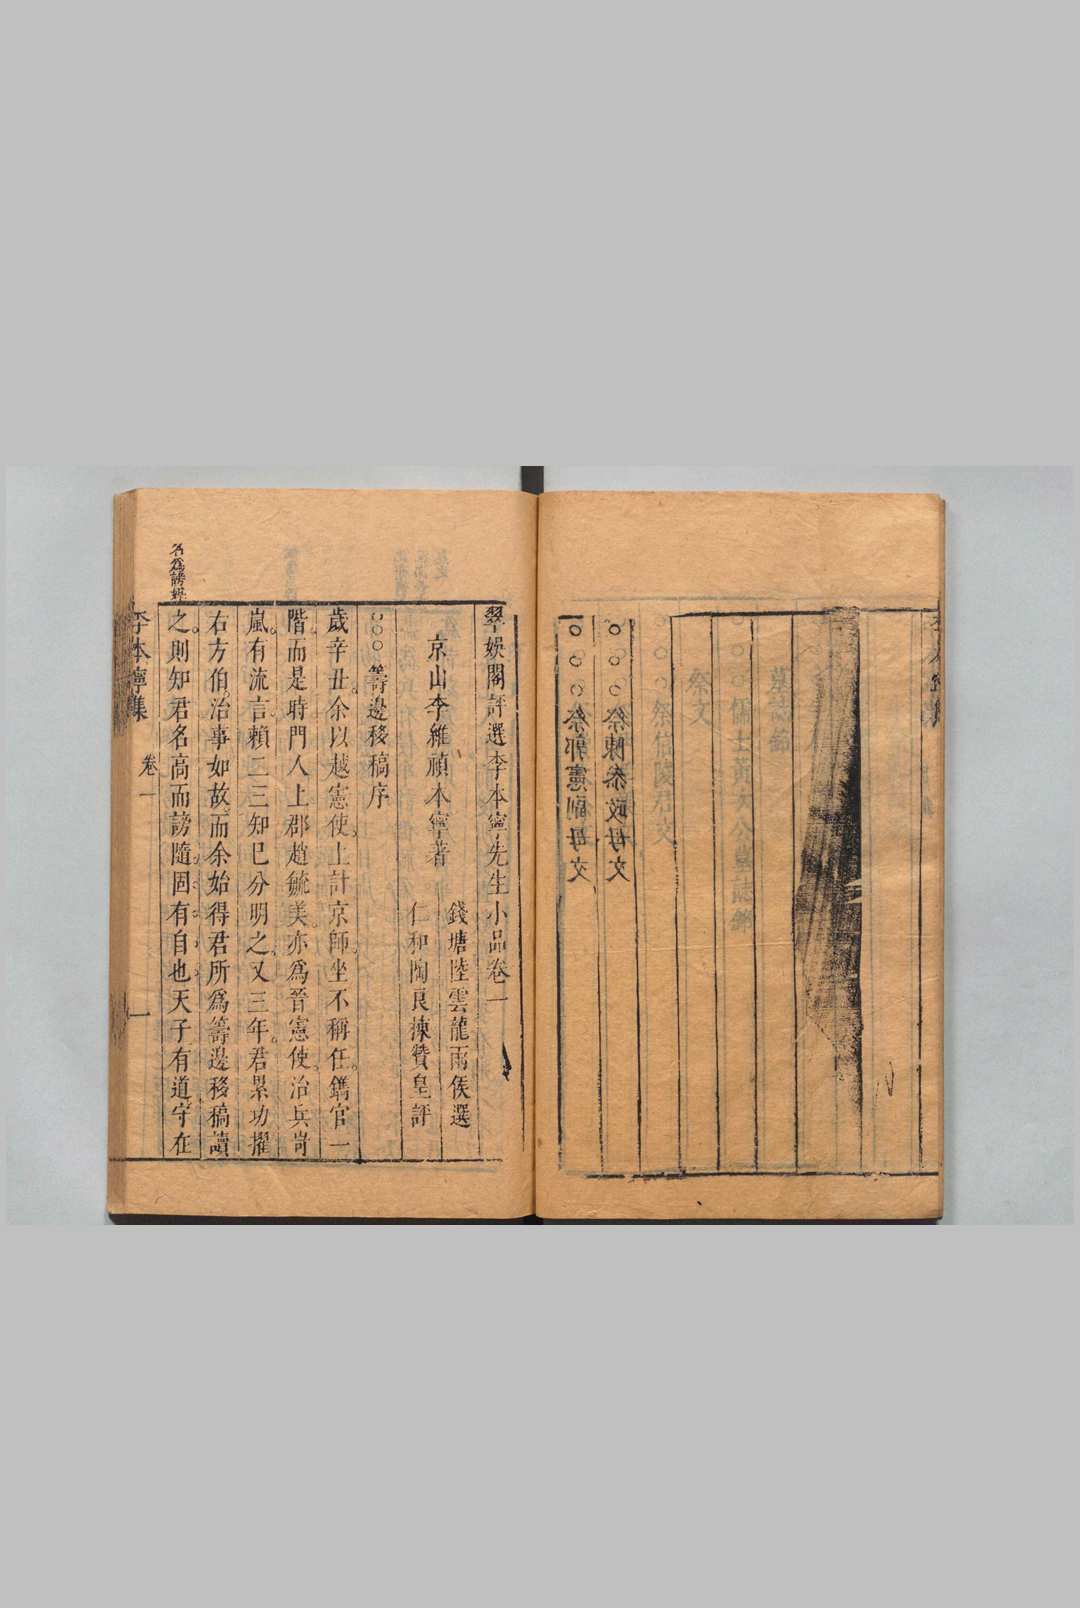 ○○○祭陳泰政母文
○○○祭郭憲副母文
翠娛閣評選李本寧先生小品卷一
錢塘陸雲龍雨侯選
京山李維禎本寧著
仁和陶良揀贊皇評
○○○籌邊移稿序
歲辛丑。余以越憲使。上計京師。坐不稱任。鐫官一
階。而是時門人上郡趙毓美。亦為晉憲使。治兵岢
嵐。有流言。賴二三知巳分明之。又三年。君累功擢
右方伯。治事如故。而余始得君所為籌邊移稿讀
之。則知君名高而謗隨。固有自也。天子有道。守在
名為謗媒
李本寧集
卷一
一